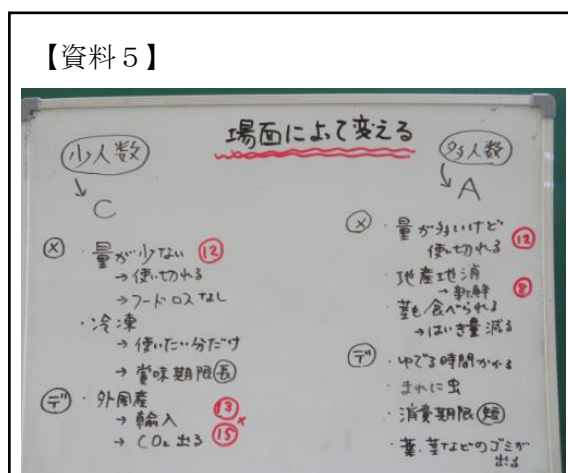 【資料5】
場面によって変える
少人数
↓
C
メ ・量が少ない ⑫
→使い切れる
→フードロスなし
・冷凍
→使いたい分だけ
→賞味期限長
デ ・外国産
→輸入 ⑬
→CO₂出る ⑮
多人数
↓
A
メ ・量が多いけど
使い切れる ⑫
・地産地消
→新鮮 ⑧
・茎も食べられる
→はいき量減る
デ ・ゆでる時間かかる
・まれに虫
・消費期限短
・葉、茎などのゴミが
出る